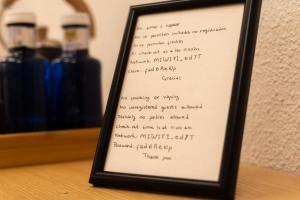 No fumar o vapear
No se permiten invitados no registrados
No se permiten fiestas
El check-out es a las 11:00hrs
Network: MIWIFI_ed7T
Clave:
Gracias
No smoking or vaping
No unregistered guests allowed
no parties allowed
check-out time is at 11:00 am
Network: MIWIFI_ed7T
Password:
Thank you